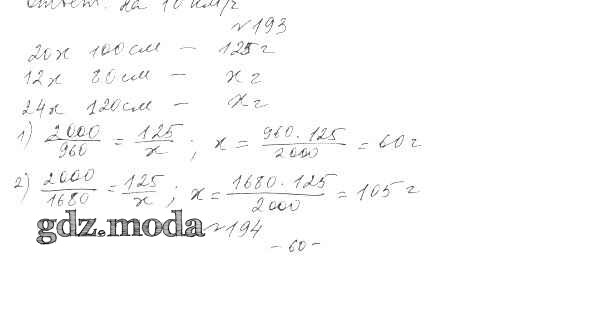 Ответ: на 10 км/г
№193
20х 100см – 125г
12х 80см – х г
24х 120см – х г
1) 2000/960 = 125/х ; х = 960·125/2000 = 60г
2) 2000/1680 = 125/х ; х = 1680·125/2000 = 105г
gdz.moda №194
– 60 –